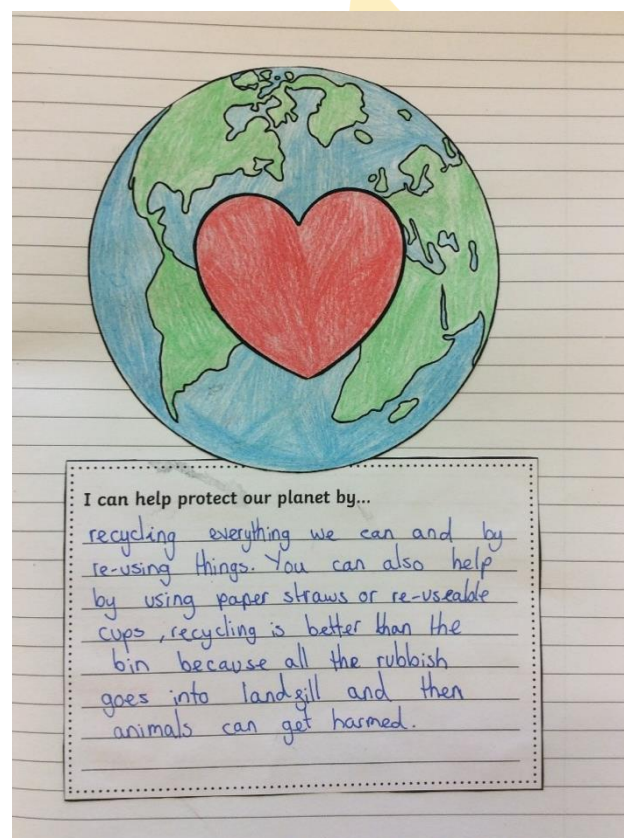 I can help protect our planet by...
recycling everything we can and by
re-using things. You can also help
by using paper straws or re-useable
cups, recycling is better than the
bin because all the rubbish
goes into landfill and then
animals can get harmed.